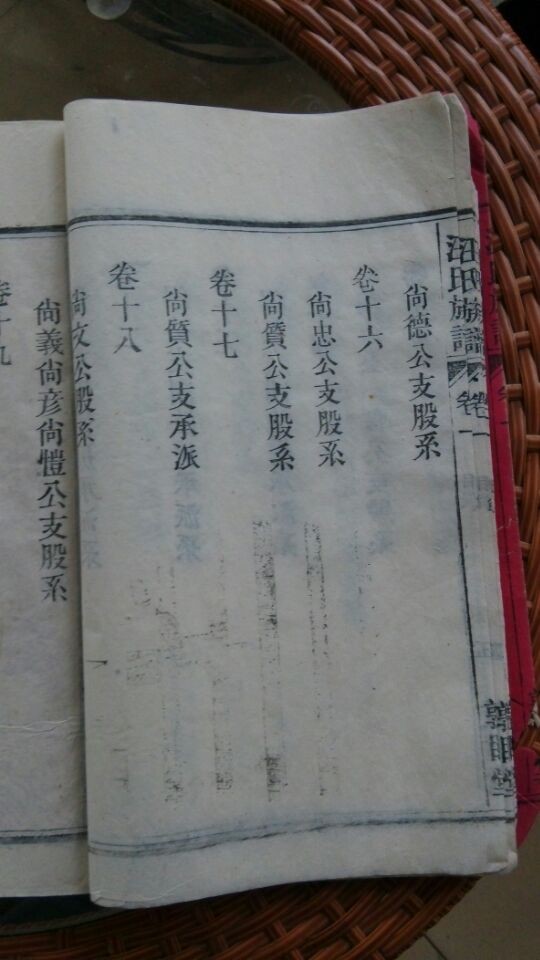 汪氏族譜
卷一
尙德公支股系
卷十六
尙忠公支股系
尙質公支股系
卷十七
尙質公支承派
卷十八
尙文公股系
尙義尙彦尙愷公支股系
卷十九